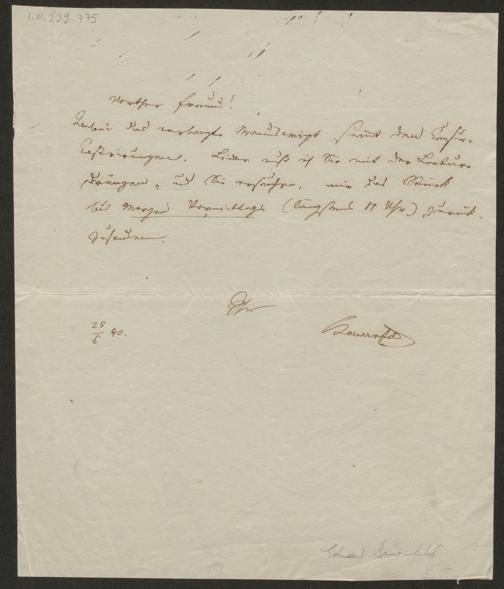 I.N. 229.775
Werther Freund!
Anbei das verlangte Manuscript sammt den Censur-
Leider muß ich Sie mit der Lecture
drängen, und Sie ersuchen, mir das Stück
bis Morgen Vormittags (längstens 11 Uhr) zurück-
zusenden.
Ihr
28/6 40.
Bauernfeld
Eduard Bauernfeld